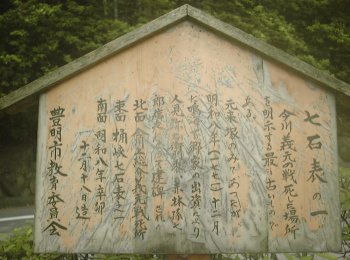 七石表の一
今川義元の戦死した場所
を明示する最も古いもので
ある
元来塚のみであったが
明和八年(一七七一)十二月
鳴海下郷家の出資により
人見弥右衛門 赤林孫七
郎
北面 今川上総介義元戦死所
東面 桶峡七石表之一
南面 明和八年辛卯
十二月十八日造
豊明市教育委員会